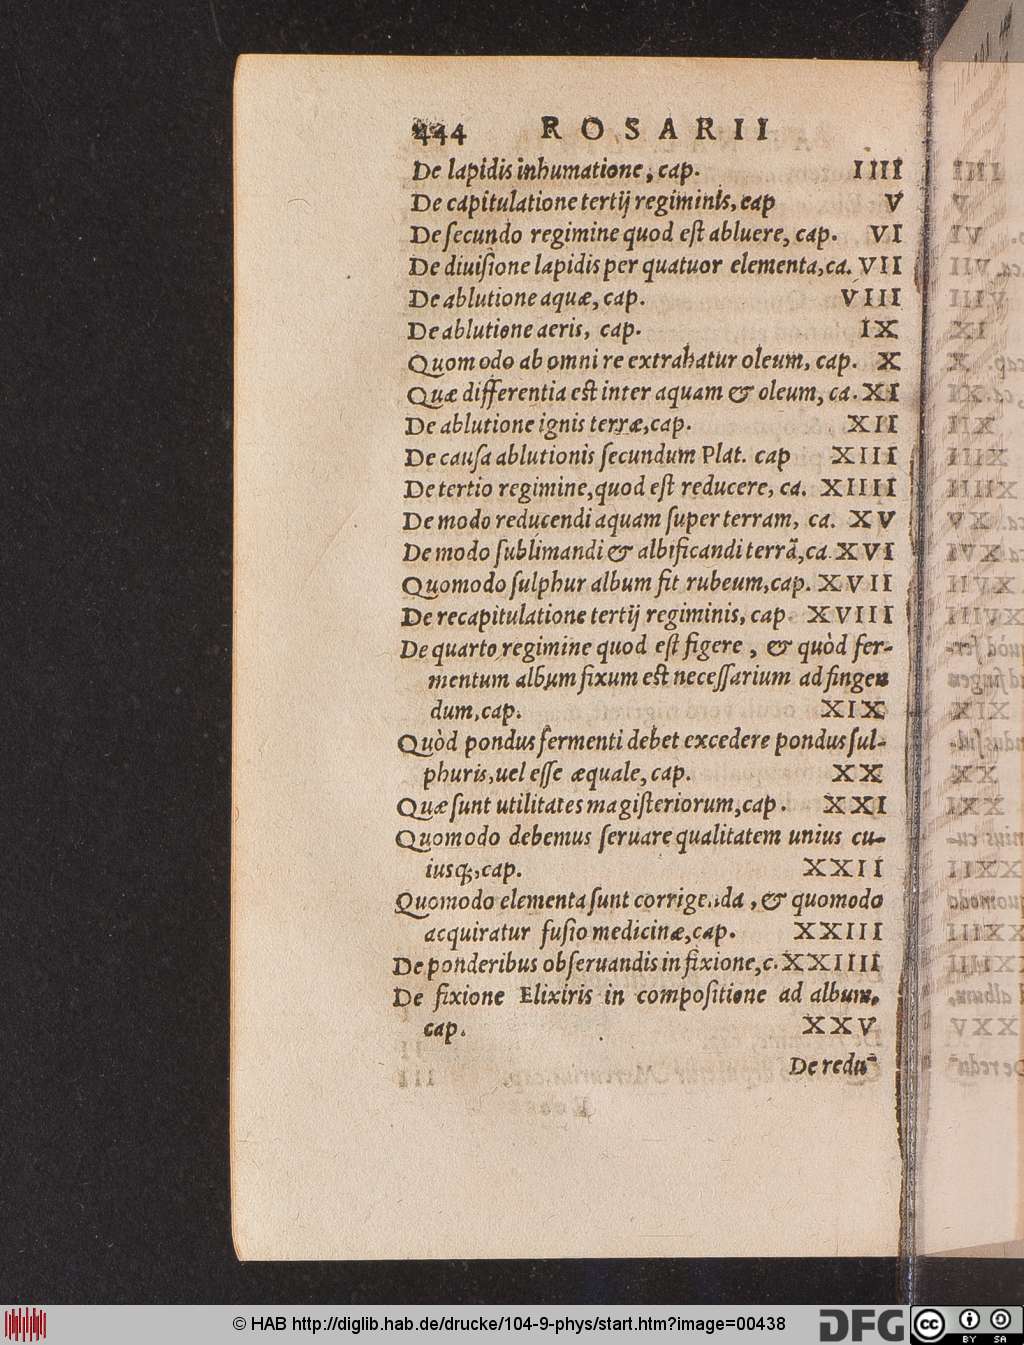 444 ROSARII
De lapidis inhumatione, cap. IIII
De capitulatione tertij regiminis, cap V
De ſecundo regimine quod eſt abluere, cap. VI
De diuiſione lapidis per quatuor elementa, ca. VII
De ablutione aquæ, cap. VIII
De ablutione aeris, cap. IX
Quomodo ab omni re extrahatur oleum, cap. X
Quæ differentia eſt inter aquam & oleum, ca. XI
De ablutione ignis terræ, cap. XII
De cauſa ablutionis ſecundum Plat. cap XIII
De tertio regimine, quod eſt reducere, ca. XIIII
De modo reducendi aquam ſuper terram, ca. XV
De modo ſublimandi & albificandi terrā, ca. XVI
Quomodo ſulphur album fit rubeum, cap. XVII
De recapitulatione tertij regiminis, cap XVIII
De quarto regimine quod eſt figere, & quòd fer-
mentum album fixum eſt neceſſarium ad fingen
dum, cap. XIX
Quòd pondus fermenti debet excedere pondus ſul-
phuris, uel eſſe æquale, cap. XX
Quæ ſunt utilitates magiſteriorum, cap. XXI
Quomodo debemus ſeruare qualitatem unius cu-
iusq;, cap. XXII
Quomodo elementa ſunt corrigenda, & quomodo
acquiratur fuſio medicinæ, cap. XXIII
De ponderibus obſeruandis in fixione, c. XXIIII
De fixione Elixiris in compoſitione ad album,
cap. XXV
De redu-
© HAB http://diglib.hab.de/drucke/104-9-phys/start.htm?image=00438
DFG
cc BY SA